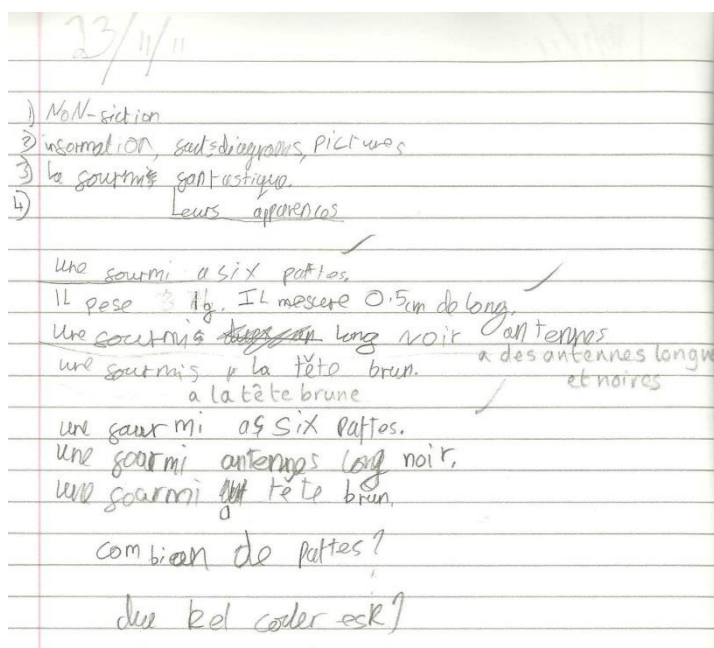 23/11/11
1) NoN-fiction
2) information, facts, diagrams, pictures
3) la fourmis fantastique.
4) Leurs apparences
une fourmi a six pattes.
IL pese 1g. IL mesure 0.5cm de long.
une fourmis long noir antennes
a des antennes longues et noires
une fourmis la tête brun.
a la tête brune
une fourmi a six pattes.
une fourmi antennes long noir.
une fourmi a tête brun.
combien de pattes?
due kel coder esk?